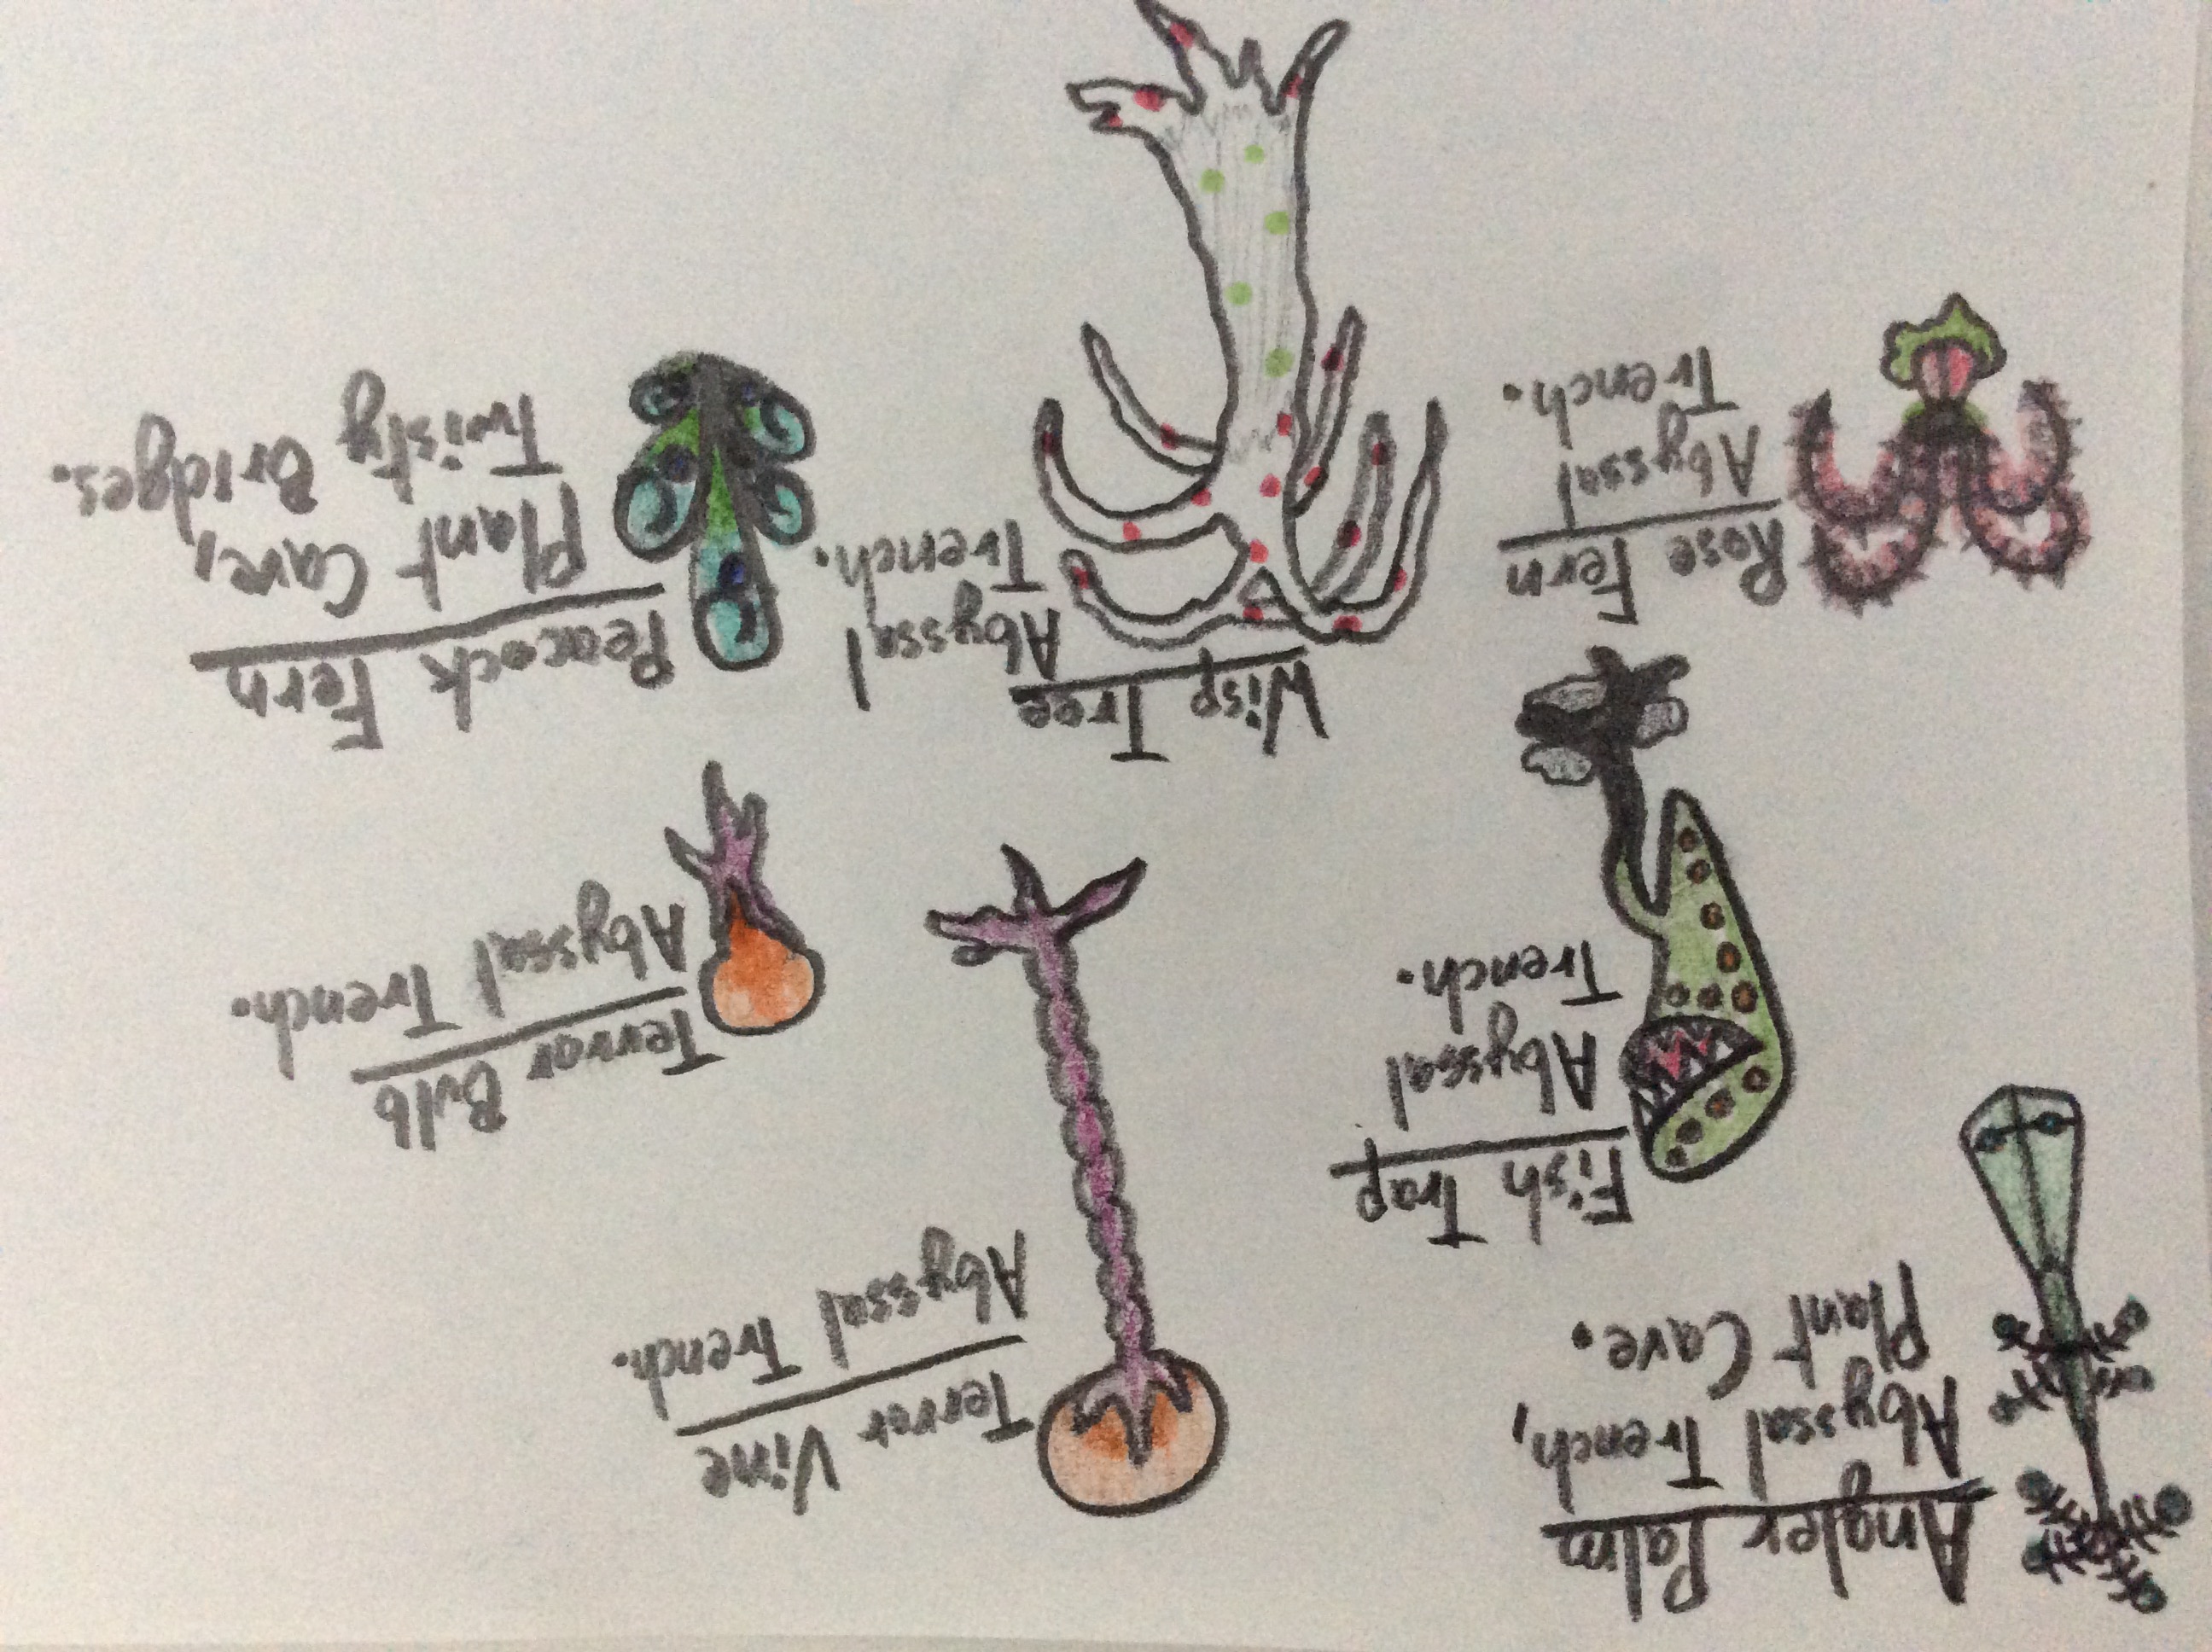 Angler Palm
Abyssal Trench,
Plant Cave.
Terror Vine
Abyssal Trench.
Fish Trap
Abyssal
Trench.
Terror Bulb
Abyssal Trench.
Rose Fern
Abyssal
Trench.
Wisp Tree
Abyssal
Trench.
Peacock Fern
Plant Cave,
Twisty Bridges.